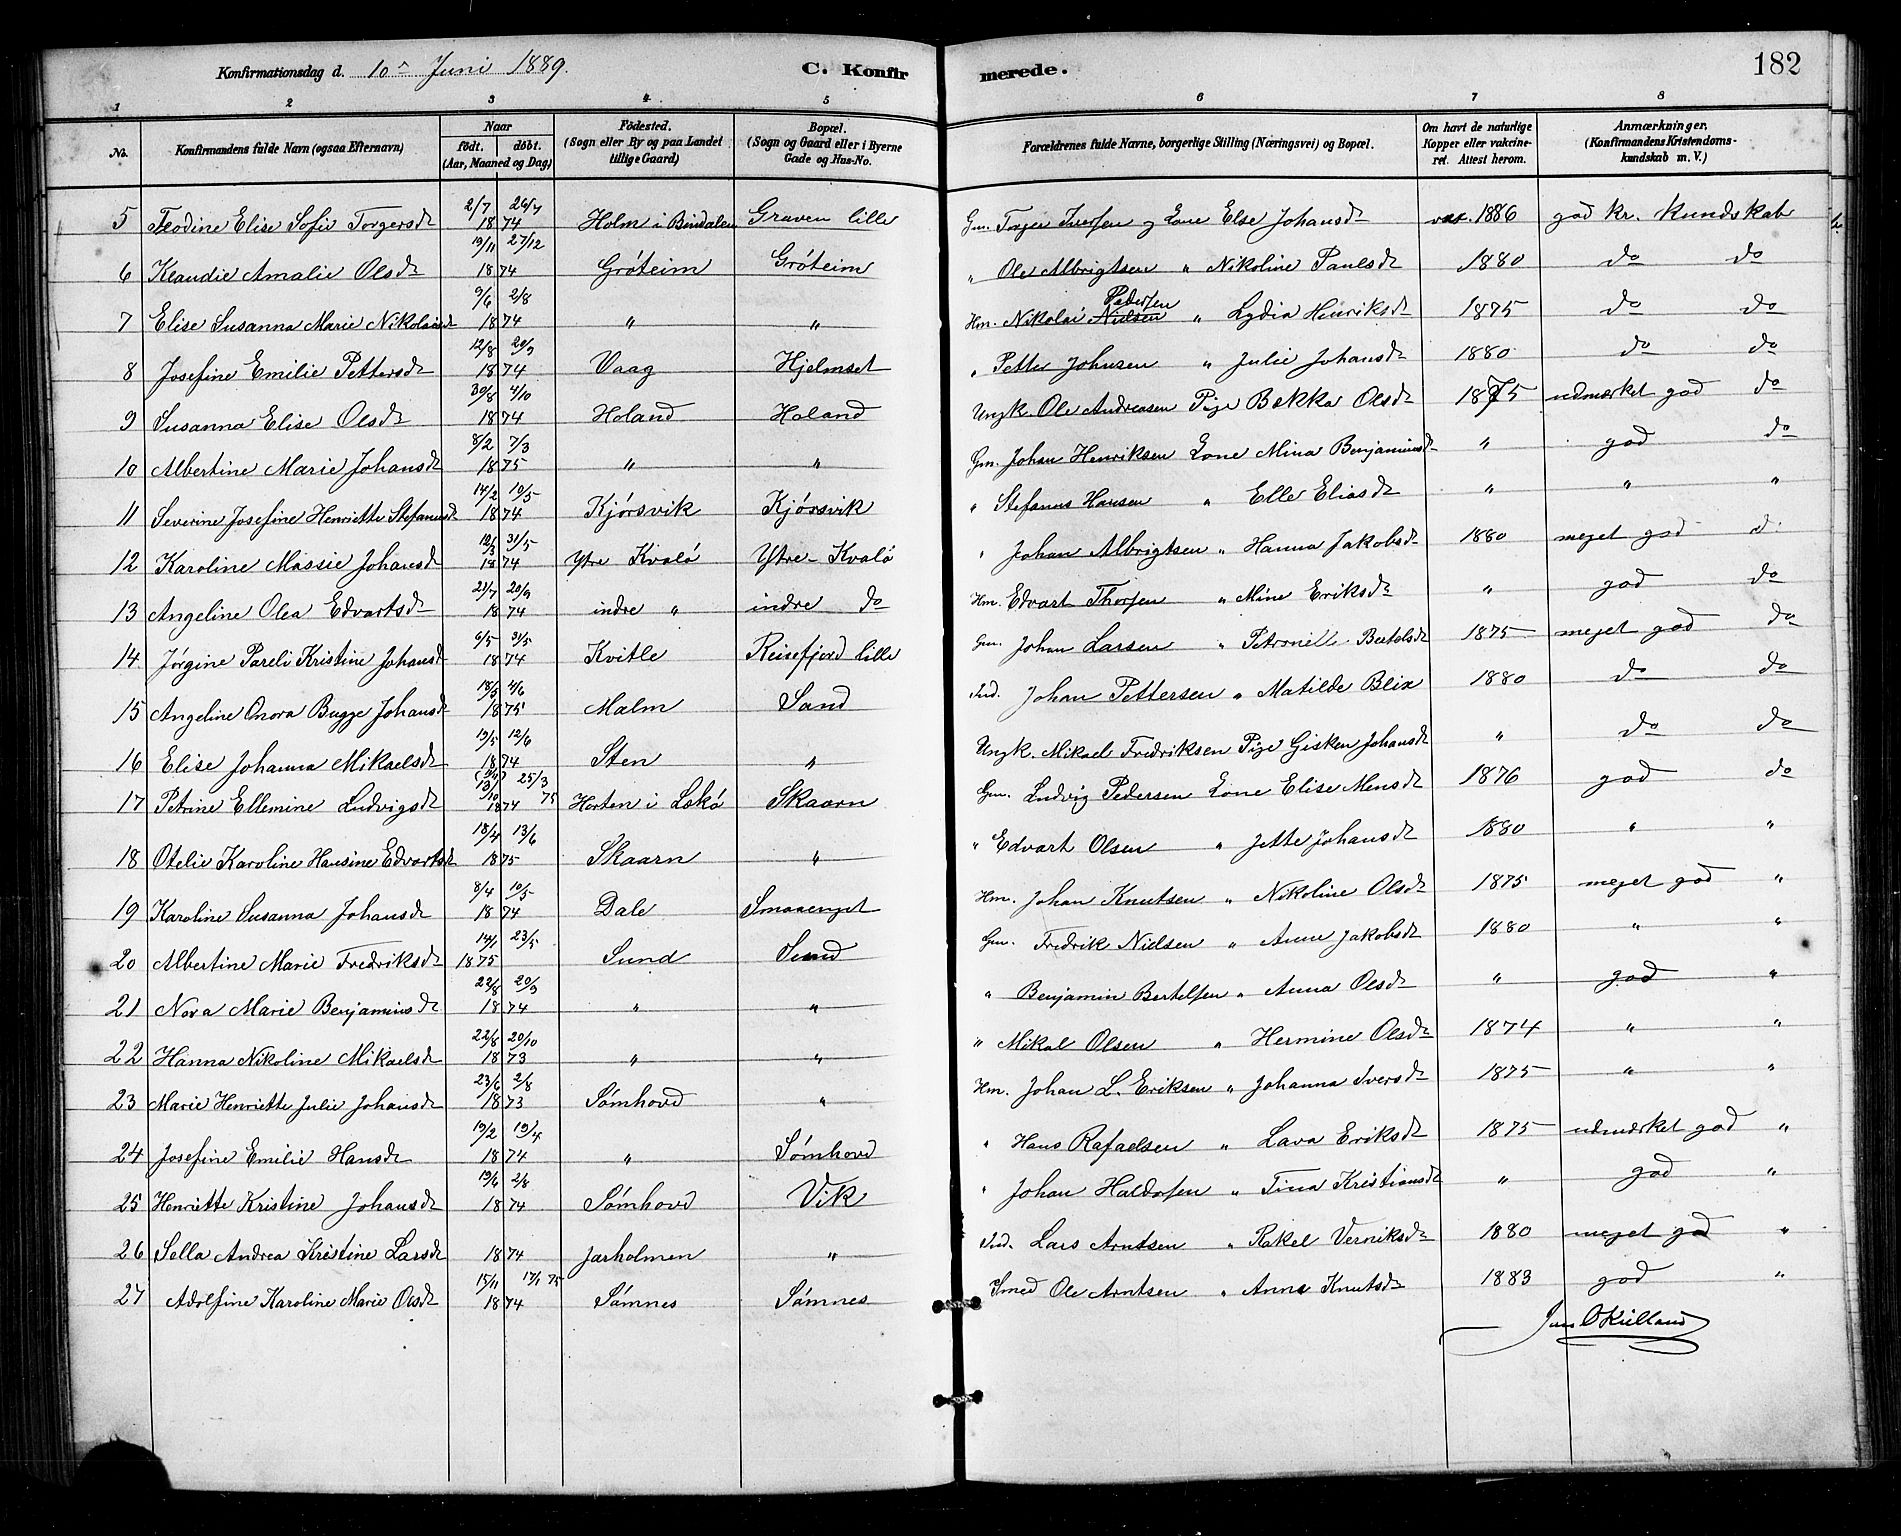 Konfirmationsdag d. 10 Juni 1889. C. Konfirmerede. 182
1 2 3 4 5 6 7 8
No. Konfirmandens fulde Navn (ogsaa Efternavn) Naar födt. döbt. (Aar, Maaned og Dag) Födested. (Sogn eller By og paa Landet tillige Gaard) Bopæl. (Sogn og Gaard eller i Byerne Gade og Hus-No. Forældrenes fulde Navne, borgerlige Stilling (Næringsvei) og Bopæl. Om havt de naturlige Kopper eller vakcineret. Attest herom. Anmærkninger. (Konfirmandens Kristendomskundskab m. V.)
5 Feodine Elise Sofie Torgersd 2/7 26/7 1874 Holm i Bindalen Graven lille Gm. Torger Iversen og Kone Else Johansd vax. 1886 god kr. Kundskab
6 Klaudie Amalie Olsd 19/11 27/12 1874 Gróteim Gróteim " Ole Albrigtsen " Nikoline Paulsd 1880 do do
7 Elise Susanna Marie Nikolaisd 9/6 2/8 1874 " " Hm. Nikolai Nielsen Pedersen " Lydia Henriksd 1875 do do
8 Josefine Emilie Pettersd 12/8 20/9 1874 Vaag Hjelmset " Petter Johnsen " Julie Johansd 1880 do do
9 Susanna Elise Olsd 30/8 4/10 1874 Holand Holand Ungk. Ole Andreasen Pige Bekka Olsd 1875 udmærket god do
10 Albertine Marie Johansd 8/2 7/3 1875 " " Gm. Johan Henriksen Kone Mina Benjaminsd " god do
11 Severine Josefine Henriette Stefanusd 14/2 10/5 1874 Kjórsvik Kjórsvik " Stefanus Hansen " Elle Eliasd " " "
12 Karoline Massie Johansd 12/3 31/5 1874 Ytre Kvaló Ytre-Kvaló " Johan Albrigtsen " Hanna Jakobsd 1880 meget god d.
13 Angeline Olea Edvartsd 21/7 20/9 1874 indre " indre do Hm. Edvart Thorsen " Mine Eriksd " god do
14 Jørgine Pareli Kristine Johansd 6/5 31/5 1874 Kvitle Reisefjord lille Gm. Johan Larsen " Petronelle Bertelsd 1875 meget god do
15 Angeline Onora Bugge Johansd 18/5 4/6 1875 Malm Sand Ind. Johan Pettersen " Matilde Blix 1880 do do
16 Elise Johanna Mikaelsd 19/5 12/6 1874 Sten " Ungk. Mikael Fredriksen Pige Gisken Johansd " do do
17 Petrine Ellemine Ludvigsd 13/10 25/3 1874 75 Horten i Lekó Skaarn Gm. Ludvig Pedersen Kone Elise Mensd 1876 god do
18 Otelie Karoline Hansine Edvartsd 18/4 13/6 1875 Skaarn " " Edvart Olsen " Jette Johansd 1880 " "
19 Karoline Susanna Johansd 8/4 10/5 1874 Dale Smaaenget Hm. Johan Knutsen " Nikoline Olsd 1875 meget god "
20 Albertine Marie Fredriksd 14/1 23/5 1875 Sund Sund Gm. Fredrik Nielsen " Anne Jakobsd 1880 " "
21 Nora Marie Benjaminsd 22/8 20/9 1874 " " " Benjamin Bertelsen " Anna Olsd " god "
22 Hanna Nikoline Mikaelsd 22/8 20/10 1873 " " " Mikal Olsen " Hermine Olsd 1874 " "
23 Marie Henriette Julie Johansd 23/6 2/8 1873 Sómhovd " Hm. Johan L. Eriksen " Johanna Iversd 1875 " "
24 Josefine Emilie Hansd 19/2 19/4 1874 " Sómhovd " Hans Rafaelsen " Lava Eriksd 1875 udmærket god "
25 Henriette Kristine Johansd 19/6 2/8 1874 Sómhovd Vik " Johan Haldorsen " Tina Kristiansd " god "
26 Sella Andrea Kristine Larsd 1874 Jarholmen " Ind. Lars Arntsen " Rakel Verniksd 1880 meget god "
27 Adolfine Karoline Marie Olsd 15/11 17/1 75 1874 Sómnes Sómnes Smed Ole Arntsen " Anna Knutsd 1883 god "
Jens O Kielland